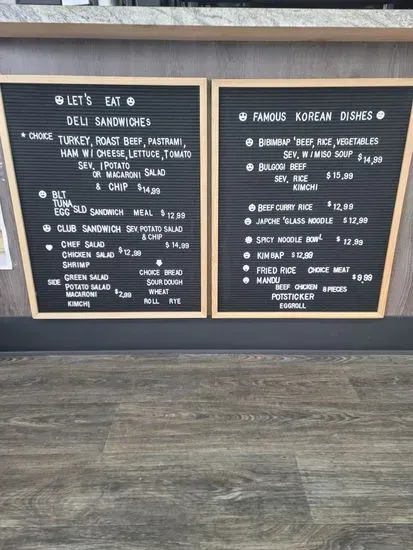 LET'S EAT
DELI SANDWICHES
* CHOICE TURKEY, ROAST BEEF, PASTRAMI,
HAM W/ CHEESE, LETTUCE, TOMATO
SEV. 1 POTATO
OR MACARONI SALAD
& CHIP $14,99
BLT
TUNA
EGG SLD SANDWICH MEAL $12,99
CLUB SANDWICH SEV. POTATO SALAD
& CHIP
$14,99
CHEF SALAD
CHICKEN SALAD $12,99
SHRIMP
SIDE GREEN SALAD
POTATO SALAD
MACARONI $2,99
KIMCHI
CHOICE BREAD
SOUR DOUGH
WHEAT
ROLL RYE
FAMOUS KOREAN DISHES
BIBIMBAP 'BEEF, RICE, VEGETABLES
SEV. W/ MISO SOUP $14,99
BULOGGI BEEF
SEV. RICE $15,99
KIMCHI
BEEF CURRY RICE $12,99
JAPCHE 'GLASS NOODLE $12,99
SPICY NOODLE BOWL $12,99
KIM BAP $12,99
FRIED RICE CHOICE MEAT
MANDU $9,99
BEEF CHICKEN 8 PIECES
POTSTICKER
EGGROLL